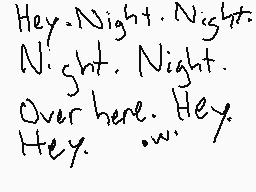 Hey. Night. Night.
Night. Night.
Over here. Hey.
Hey. .w.